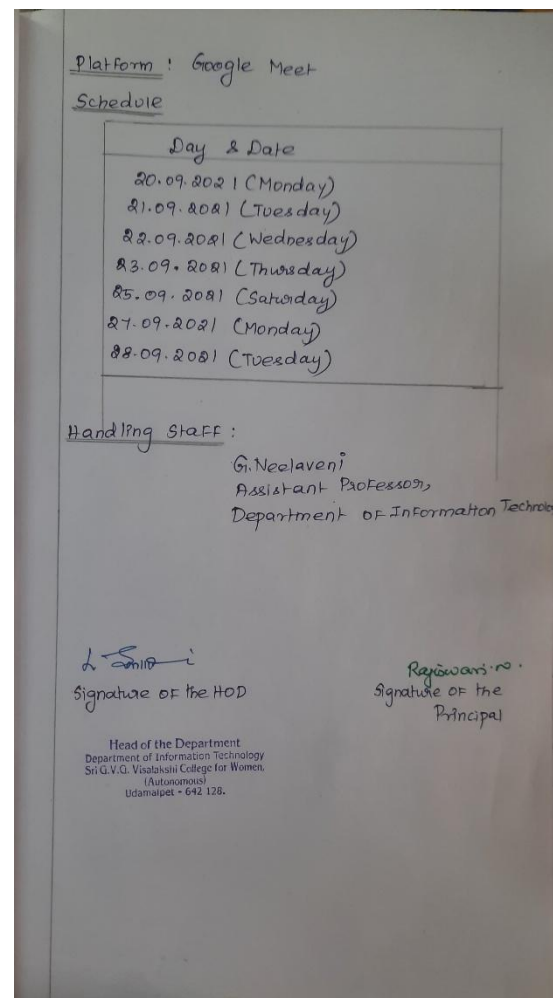 Platform : Google Meet
Schedule
Day & Date
20.09.2021 (Monday)
21.09.2021 (Tuesday)
22.09.2021 (Wednesday)
23.09.2021 (Thursday)
25.09.2021 (Saturday)
27.09.2021 (Monday)
28.09.2021 (Tuesday)
Handling Staff :
G. Neelaveni
Assistant Professor,
Department of Information Technolo
Rajeswari.
Signature of the HOD
Signature of the
Principal
Head of the Department
Department of Information Technology
Sri G.V.G. Visalakshi College for Women,
(Autonomous)
Udamalpet - 642 128.